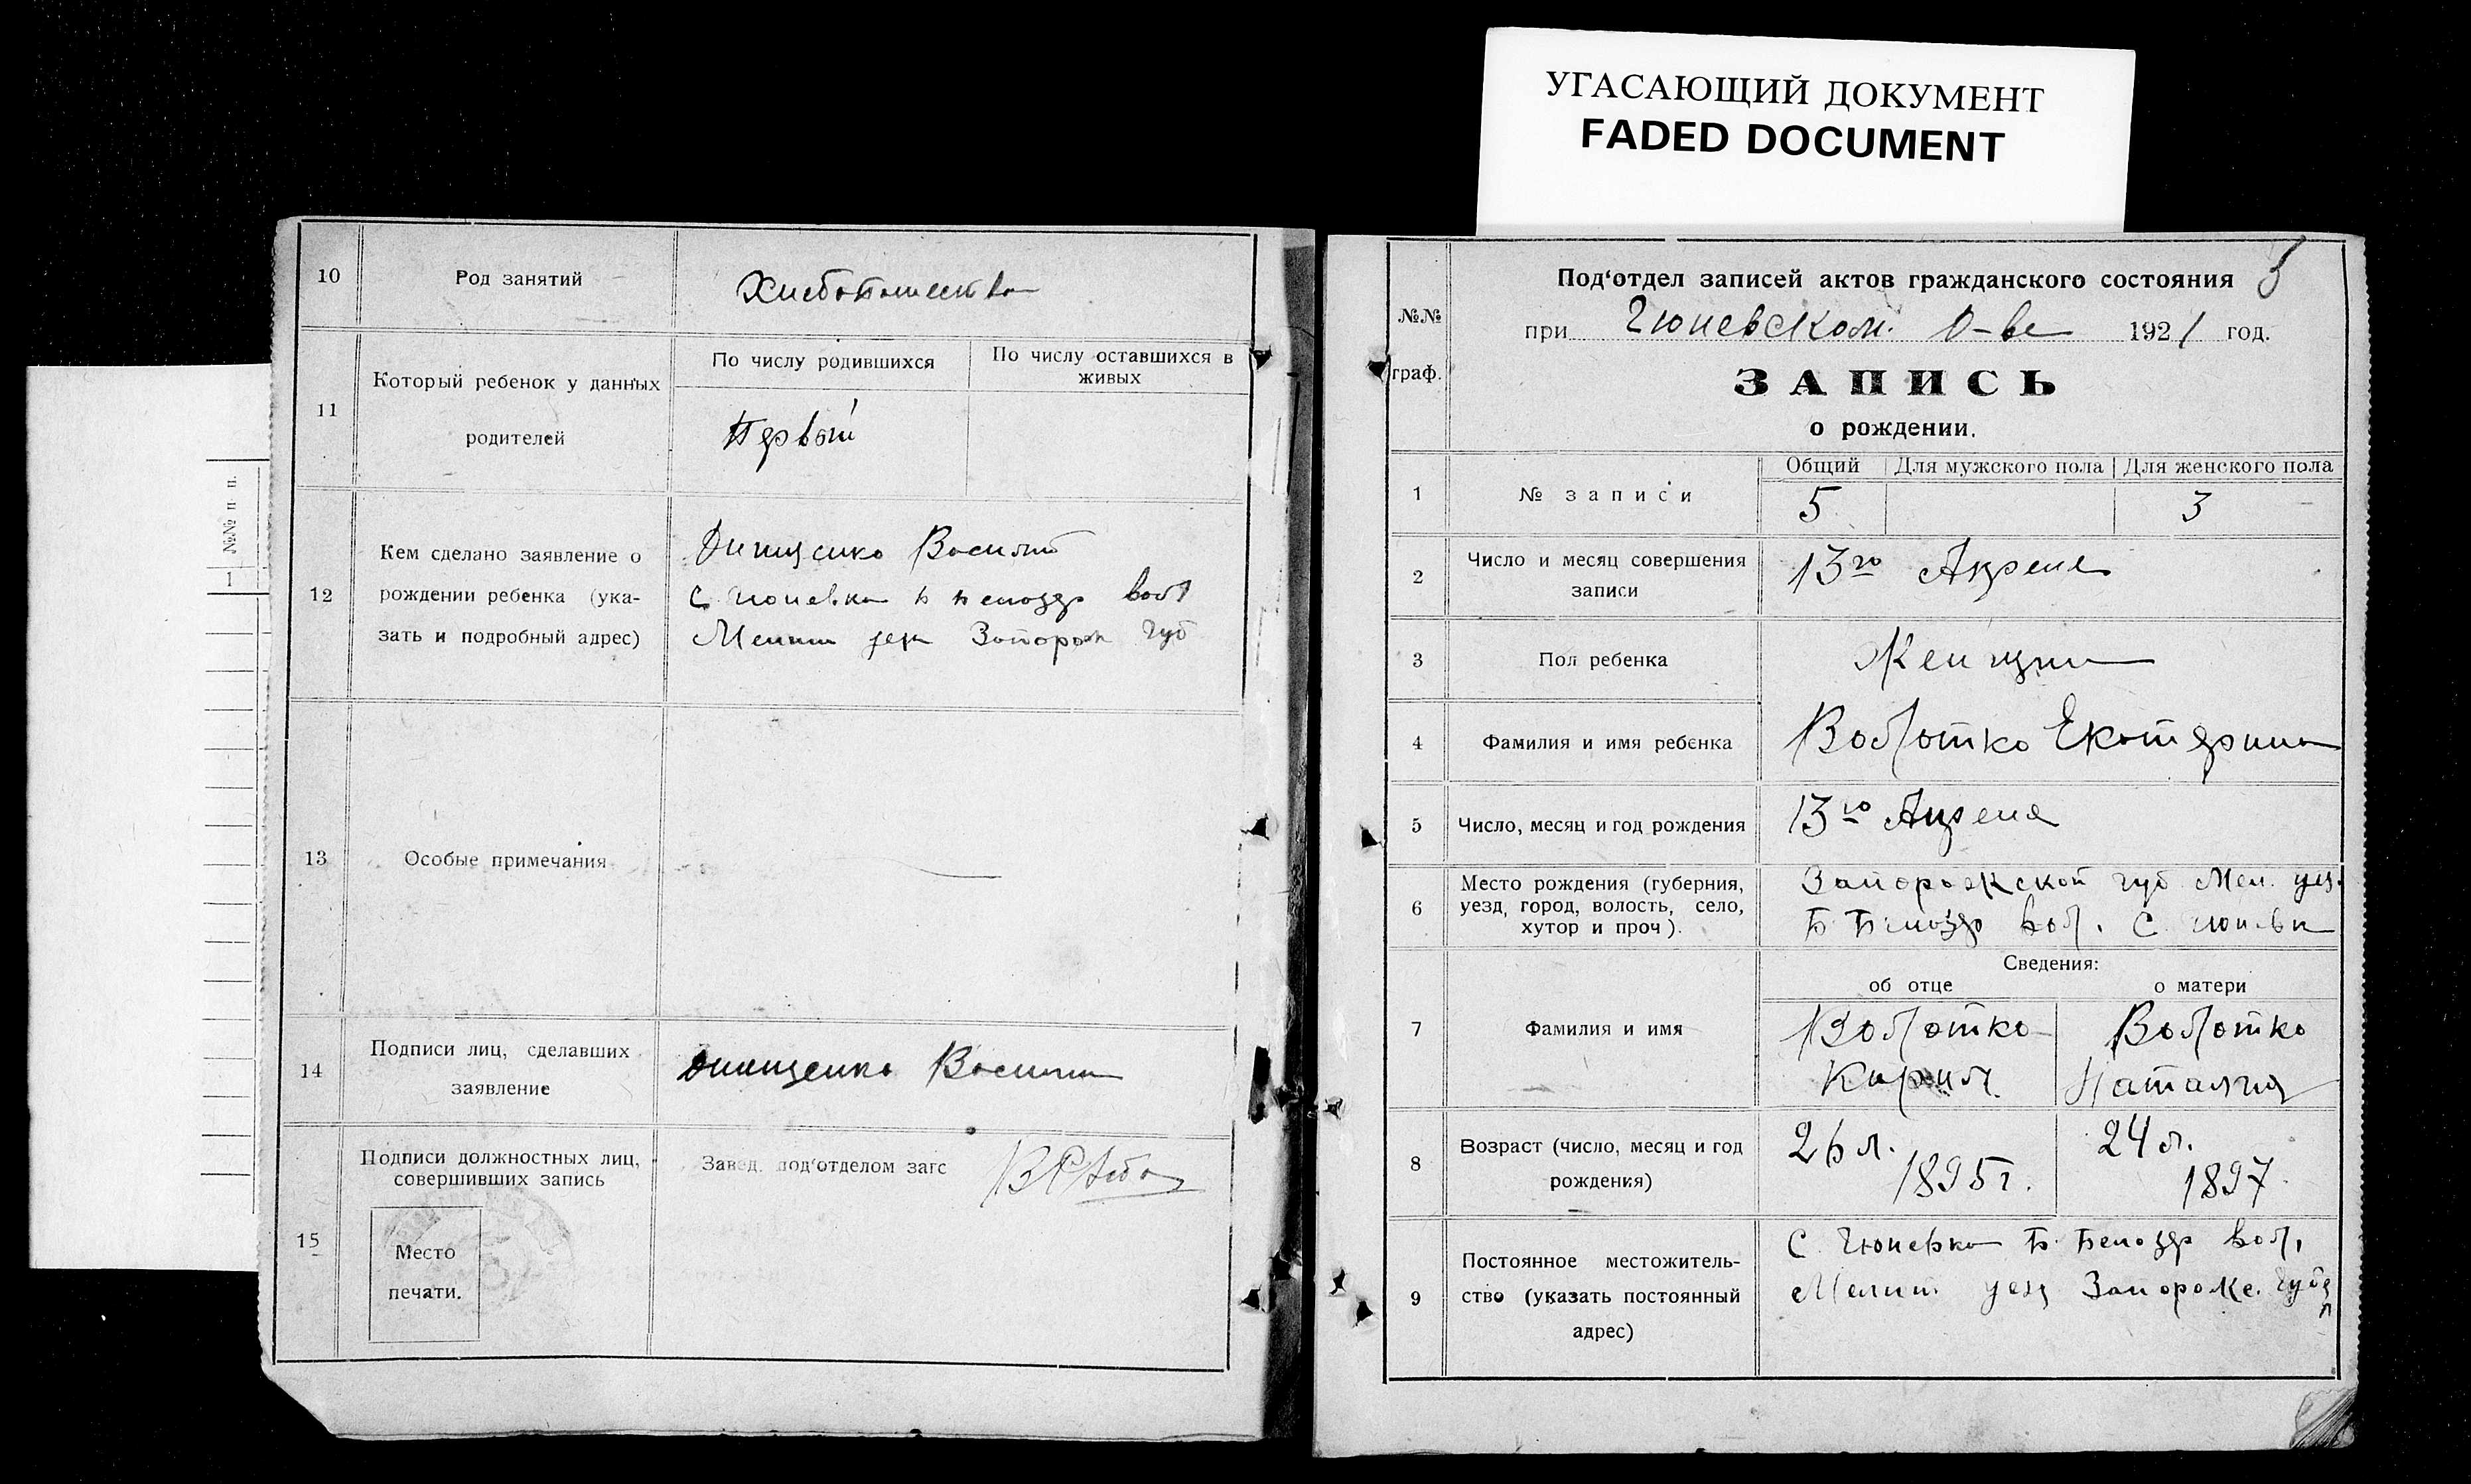 УГАСАЮЩИЙ ДОКУМЕНТ
FADED DOCUMENT
10
Род занятий
11
Который ребенок у данных
родителей
По числу родившихся
По числу оставшихся в
живых
Первый
12
Кем сделано заявление о
рождении ребенка (ука-
зать и подробный адрес)
Онищенко Василий
С. Чюневка Б Белозер вол
Мелит уез Запорож губ
13
Особые примечания
14
Подписи лиц, сделавших
заявление
Онищенко Василий
15
Подписи должностных лиц,
совершивших запись
Завед. под‘отделом загс
Место
печати.
№№ п п.
1
№№
граф.
Под‘отдел записей актов гражданского состояния
при Чюневском О-ве 1921 год.
ЗАПИСЬ
о рождении.
1
№ записи
Общий
Для мужского пола
Для женского пола
5
3
2
Число и месяц совершения
записи
13го Апреля
3
Пол ребенка
4
Фамилия и имя ребенка
Волотко Екатерина
5
Число, месяц и год рождения
13го Апреля
6
Место рождения (губерния,
уезд, город, волость, село,
хутор и проч).
Запорожской губ Мел. уез.
Б Белозер вол. С.
Сведения:
об отце
о матери
7
Фамилия и имя
Волотко
Кирил
Волотко
Наталия
8
Возраст (число, месяц и год
рождения)
26 л.
1895 г.
24 л.
1897
9
Постоянное местожитель-
ство (указать постоянный
адрес)
С. Чюневка Б. Белозер вол,
Мелит уез Запорож.